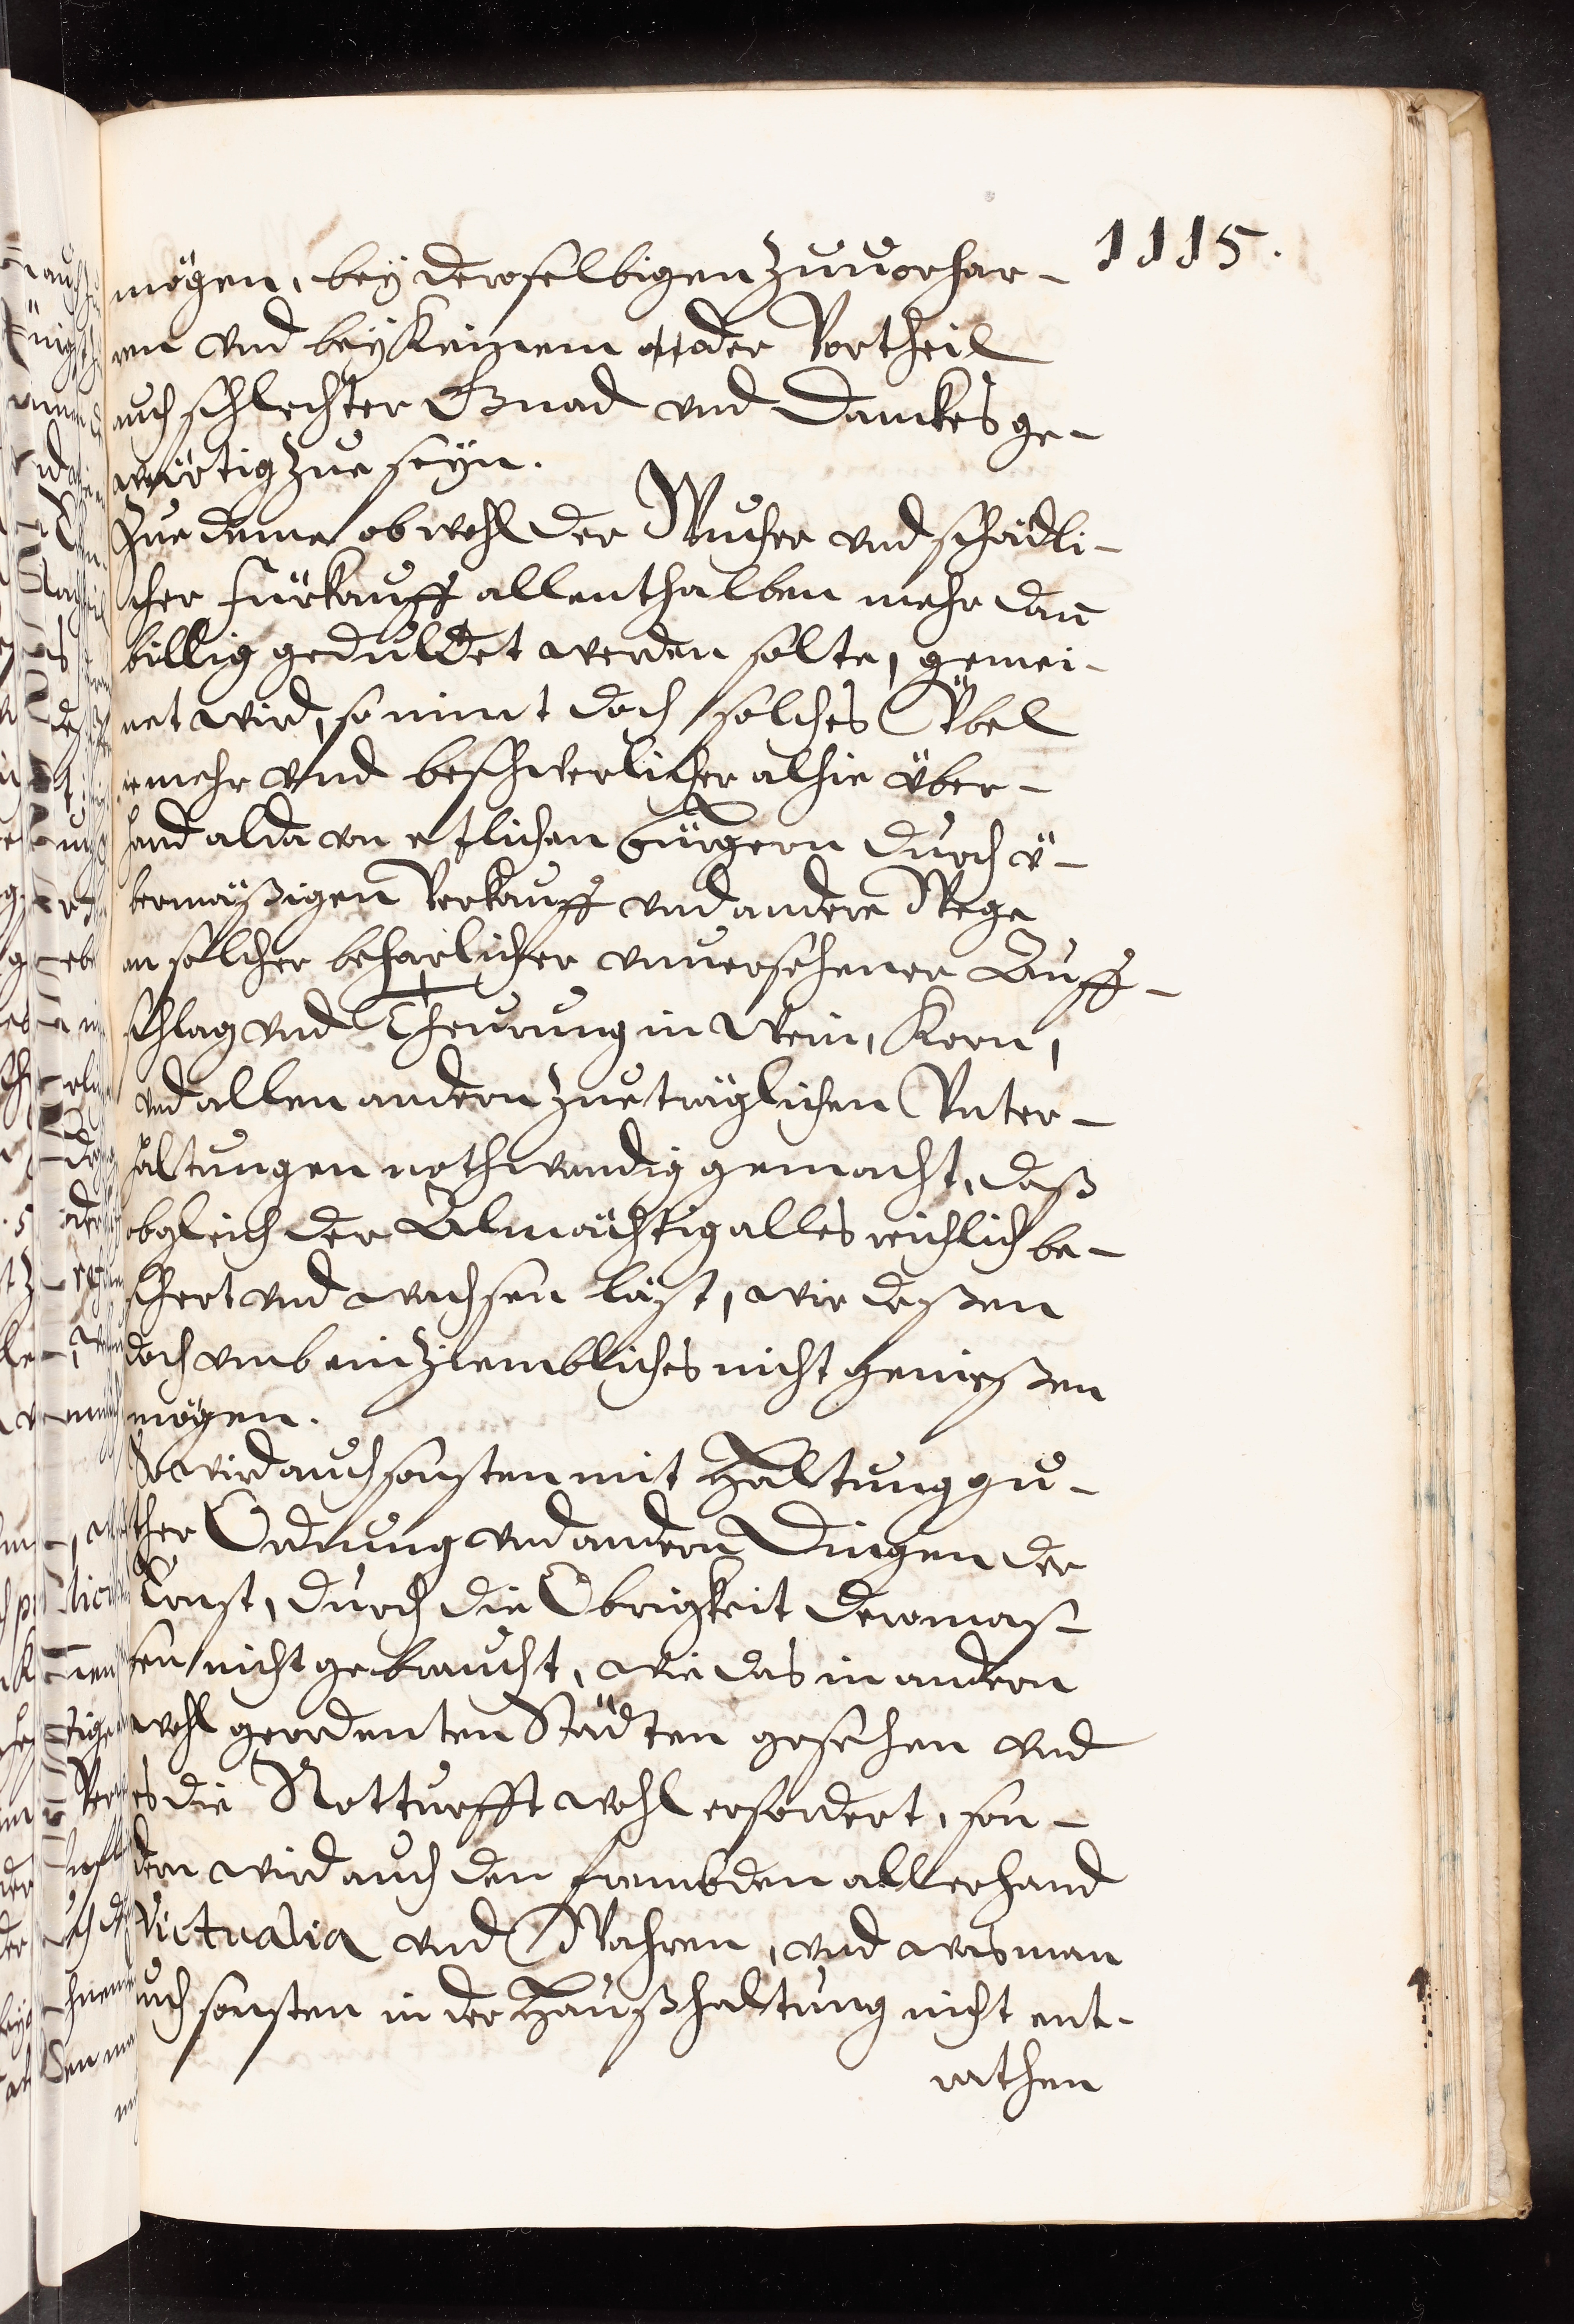 1115.
mögen, bey deroselbigen zuuorhar-
ren vnd bey keinem oder Vortheil
auch schlechter Gnad vnd Danckes ge-
wärtig zue seyn.
Zue deme ob wohl der Wucher vnd schädli-
cher fürkauff allenthalben mehr dan
billig geduldet werden solte, gemei-
net wird, so nimt doch solches Vbel
ie mehr vnd beschwerlicher alhie über-
hand alda von etzlichen bürgern durch ü-
bermäßigen Verkauff vnd andere Wege
an solcher beharlicher vnuersehener Auff-
schlag vnd Theurung in Wein, Korn,
vnd allen andern zueträglichen Vnter-
haltungen nothwendig gemacht, daß
obgleich der Almächtig alles reichlich be-
schert vnd wachsen läst, wir deßen
doch vmb ein ziembliches nicht genießen
mögen.
So wird auch sonsten mit Haltung gu-
ther Ordnung vnd andern Dingen der
Ernst, durch die Obrigkeit dermas-
sen nicht gebraucht, wie das in andern
wohl geordenten Städten geschehen vnd
es die Notturfft wohl erfordert, son-
dern wird auch den frembden allerhand
Victualia vnd Wahren, vnd was man
auch sonsten in der Haußhaltung nicht ent-
rathen